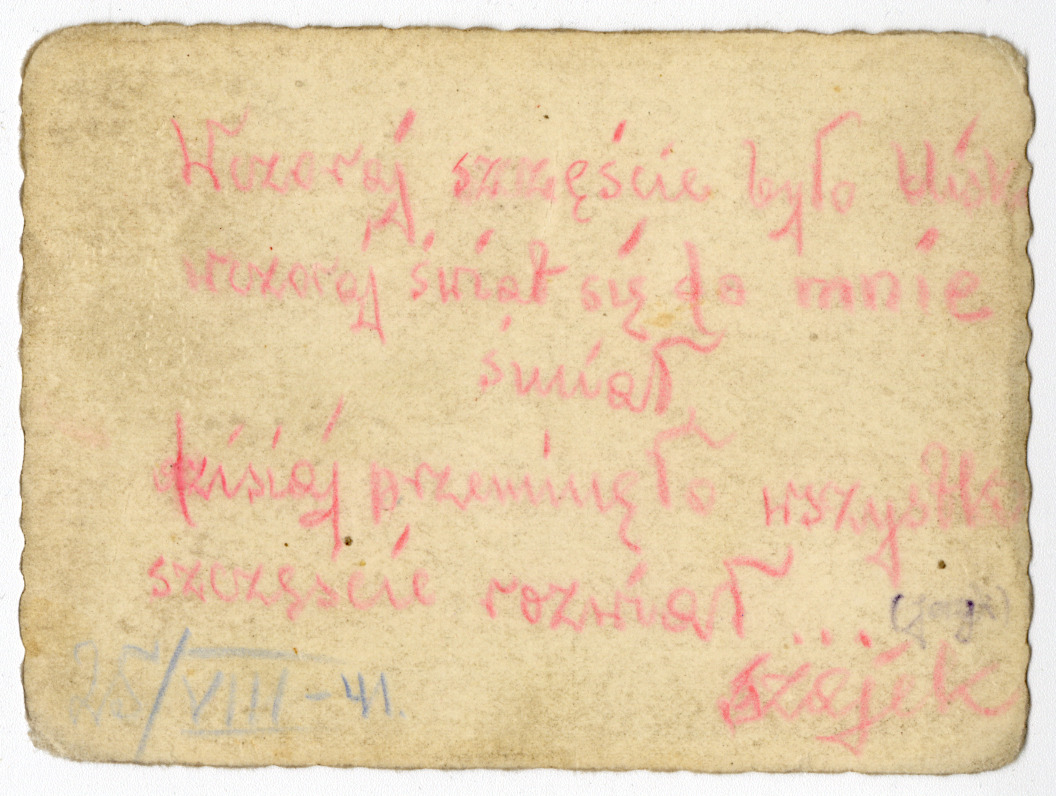 Wczoraj szczęście było blisko
wczoraj świat się do mnie
śmiał,
dzisiaj przeminęło wszystko
szczęście rozwiał ...
szajek
25/VIII - 41.